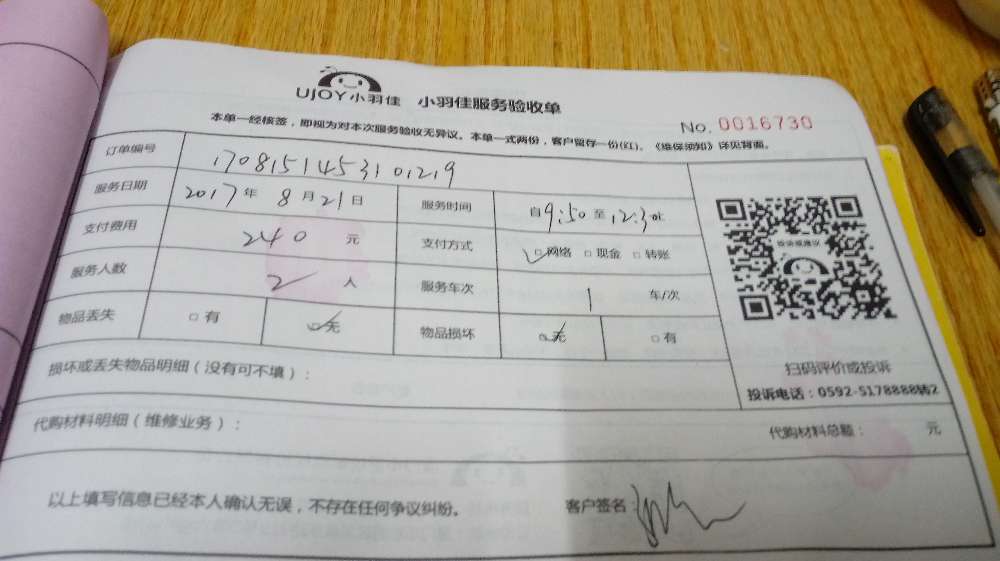 UJOY小羽佳 小羽佳服务验收单
No. 0016730
本单一经核签，即视为对本次服务验收无异议。本单一式两份，客户留存一份(红)。《维保须知》详见背面。
订单编号 1708151453101219
服务日期 2017年 8月21日 服务时间 自9:50至12:30
支付费用 240 元 支付方式 ☑网络 □现金 □转账
服务人数 2 人 服务车次 1 车/次
物品丢失 □有 ☑无 物品损坏 ☑无 □有
损坏或丢失物品明细（没有可不填）：
扫码评价或投诉
投诉电话：0592-5178888转2
代购材料明细（维修业务）：
代购材料总额： 元
以上填写信息已经本人确认无误，不存在任何争议纠纷。 客户签名：